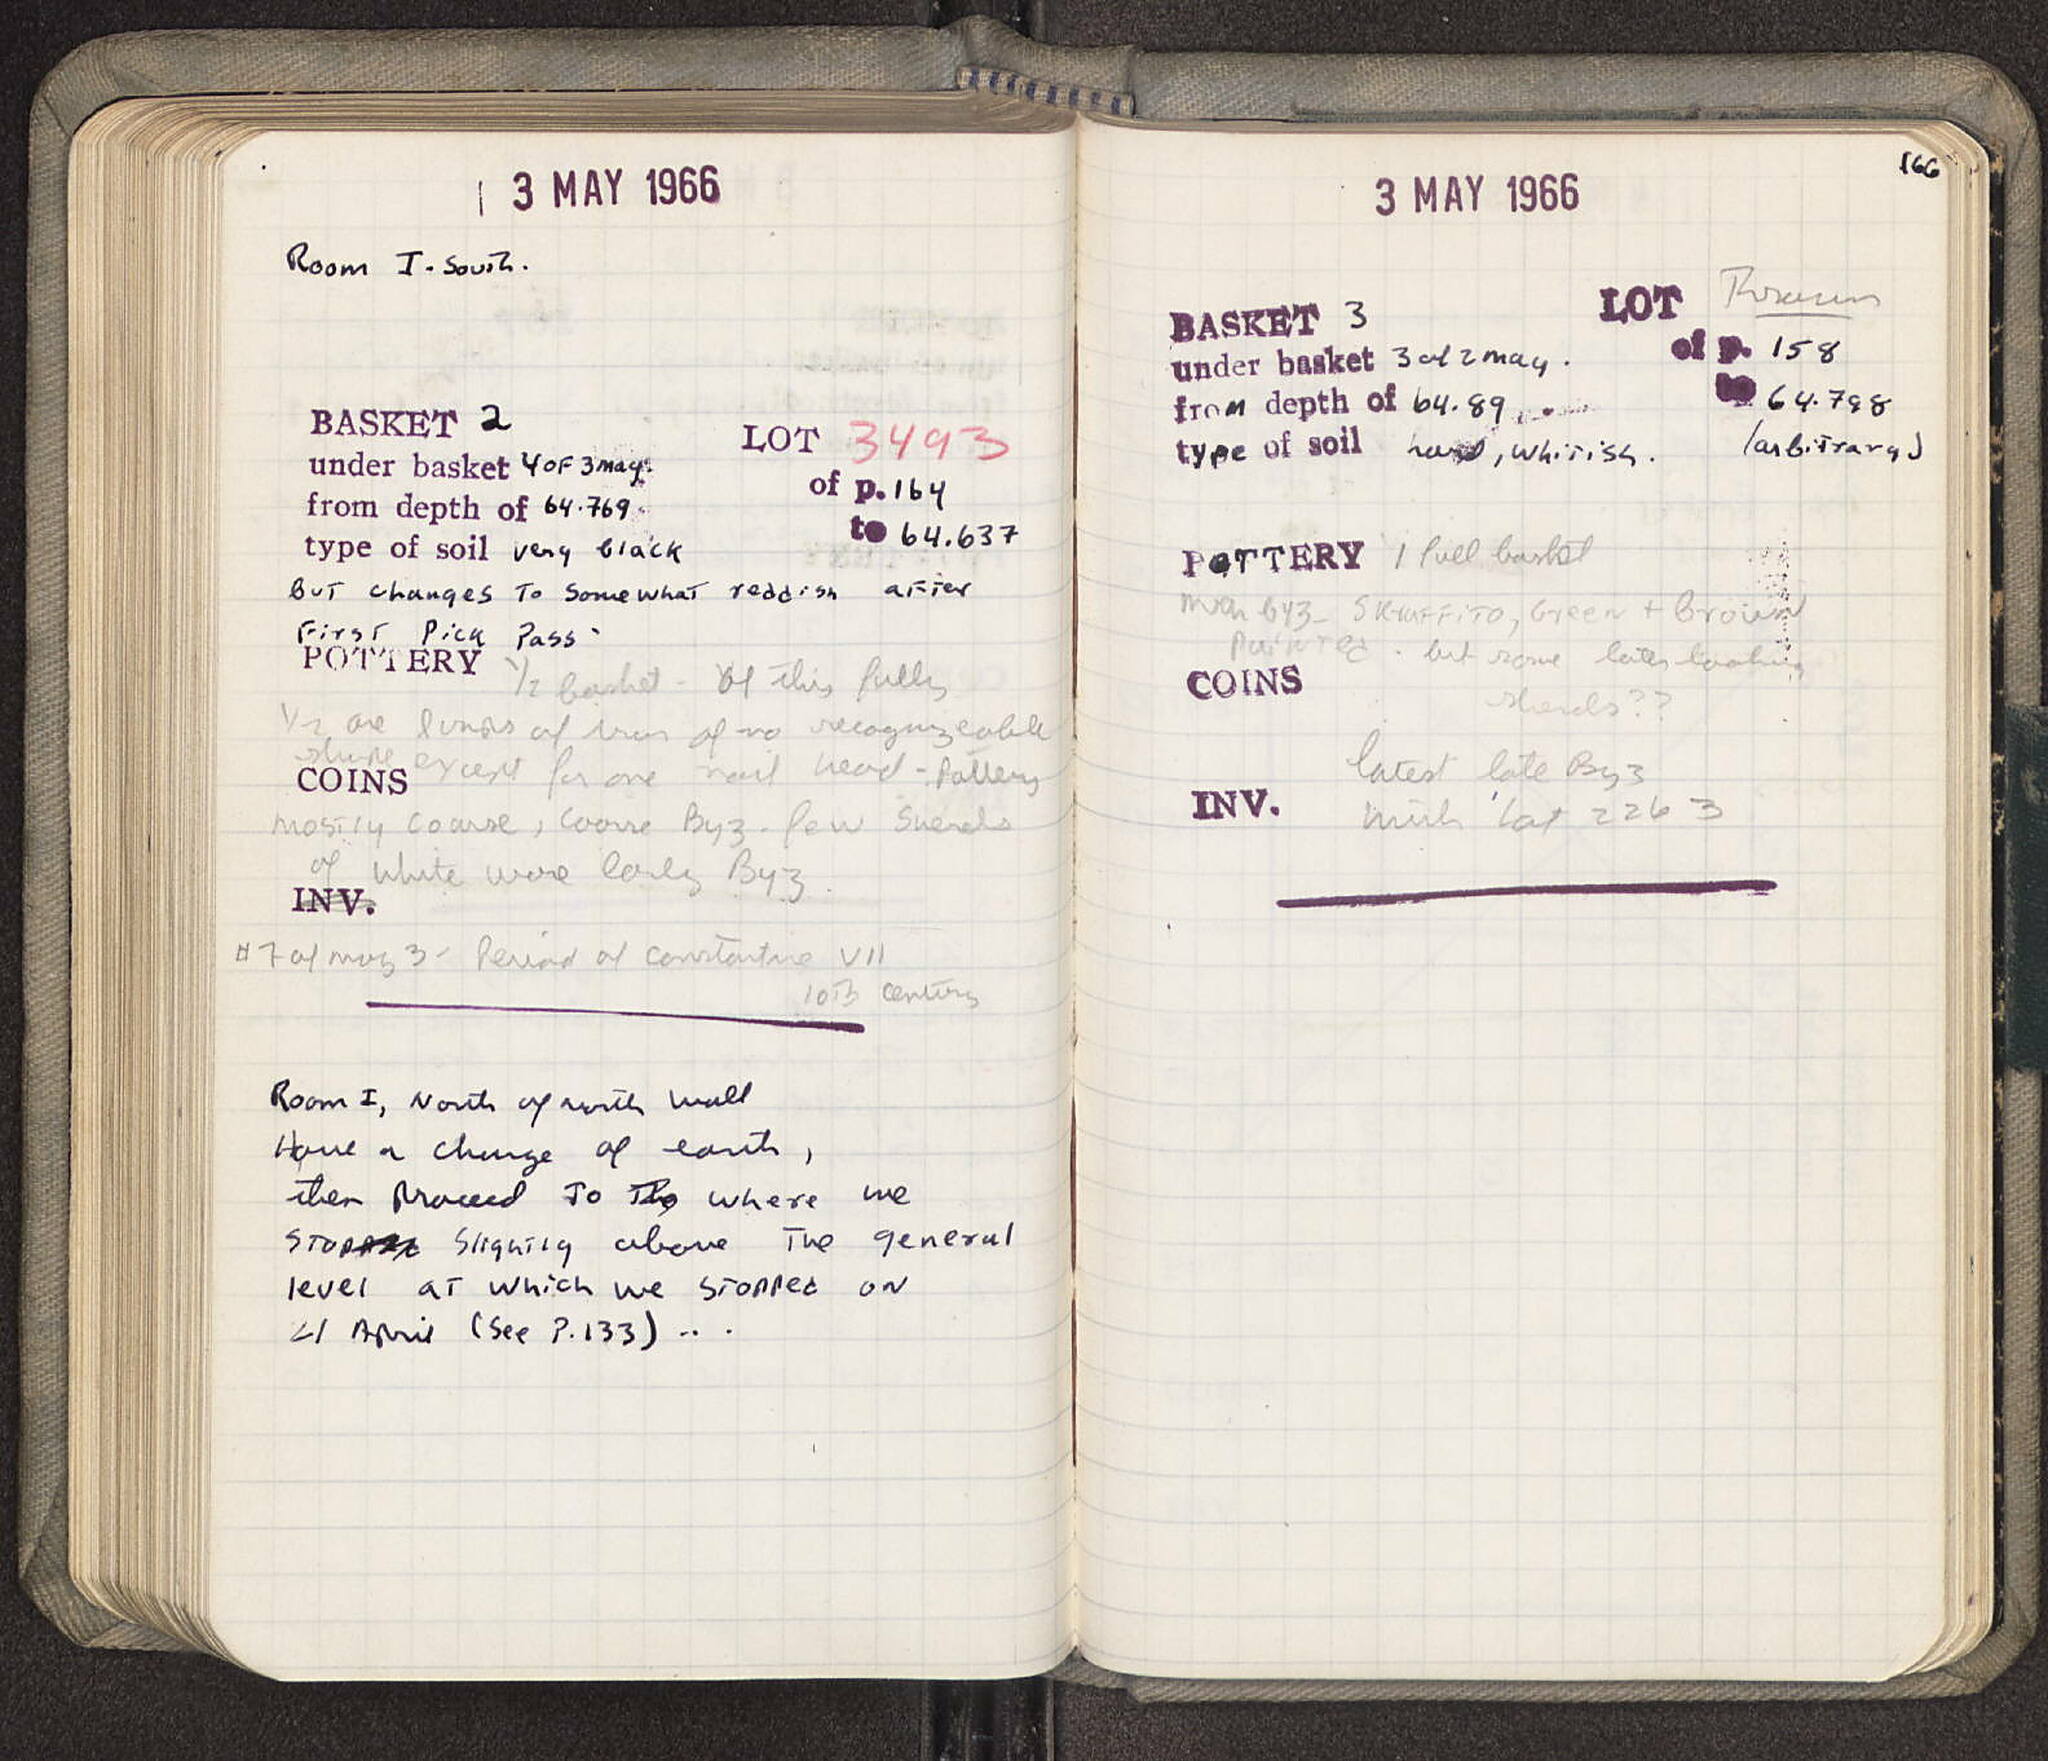 3 MAY 1966
Room I. South.
BASKET 2
LOT 3493
under basket 4 of 3 may.
of p. 164
from depth of 64.769
to 64.637
type of soil very black
But changes to somewhat reddish after
First Pick Pass
POTTERY 1/2 basket - Of this fully
1/2 are lumps of iron of no recognizeable
shape except for one nail head - Pottery
COINS
mostly coarse, coarse Byz. few sherds
of white ware early Byz.
INV.
#7 of may 3 - Period of Constantine VII
10th century
Room I, North of north wall
Have a change of earth,
then proceed to The where we
stopped slightly above The general
level at which we stopped on
21 April (See P. 133) ...
166
3 MAY 1966
BASKET 3
LOT
under basket 3 of 2 may.
of p. 158
from depth of 64.89
to 64.798
type of soil hard, whitish.
(arbitrary)
POTTERY 1 full basket
much byz - Skraffito, Green + Brown
Painted. but some later looking
COINS
sherds??
latest late Byz
INV.
with lot 2263